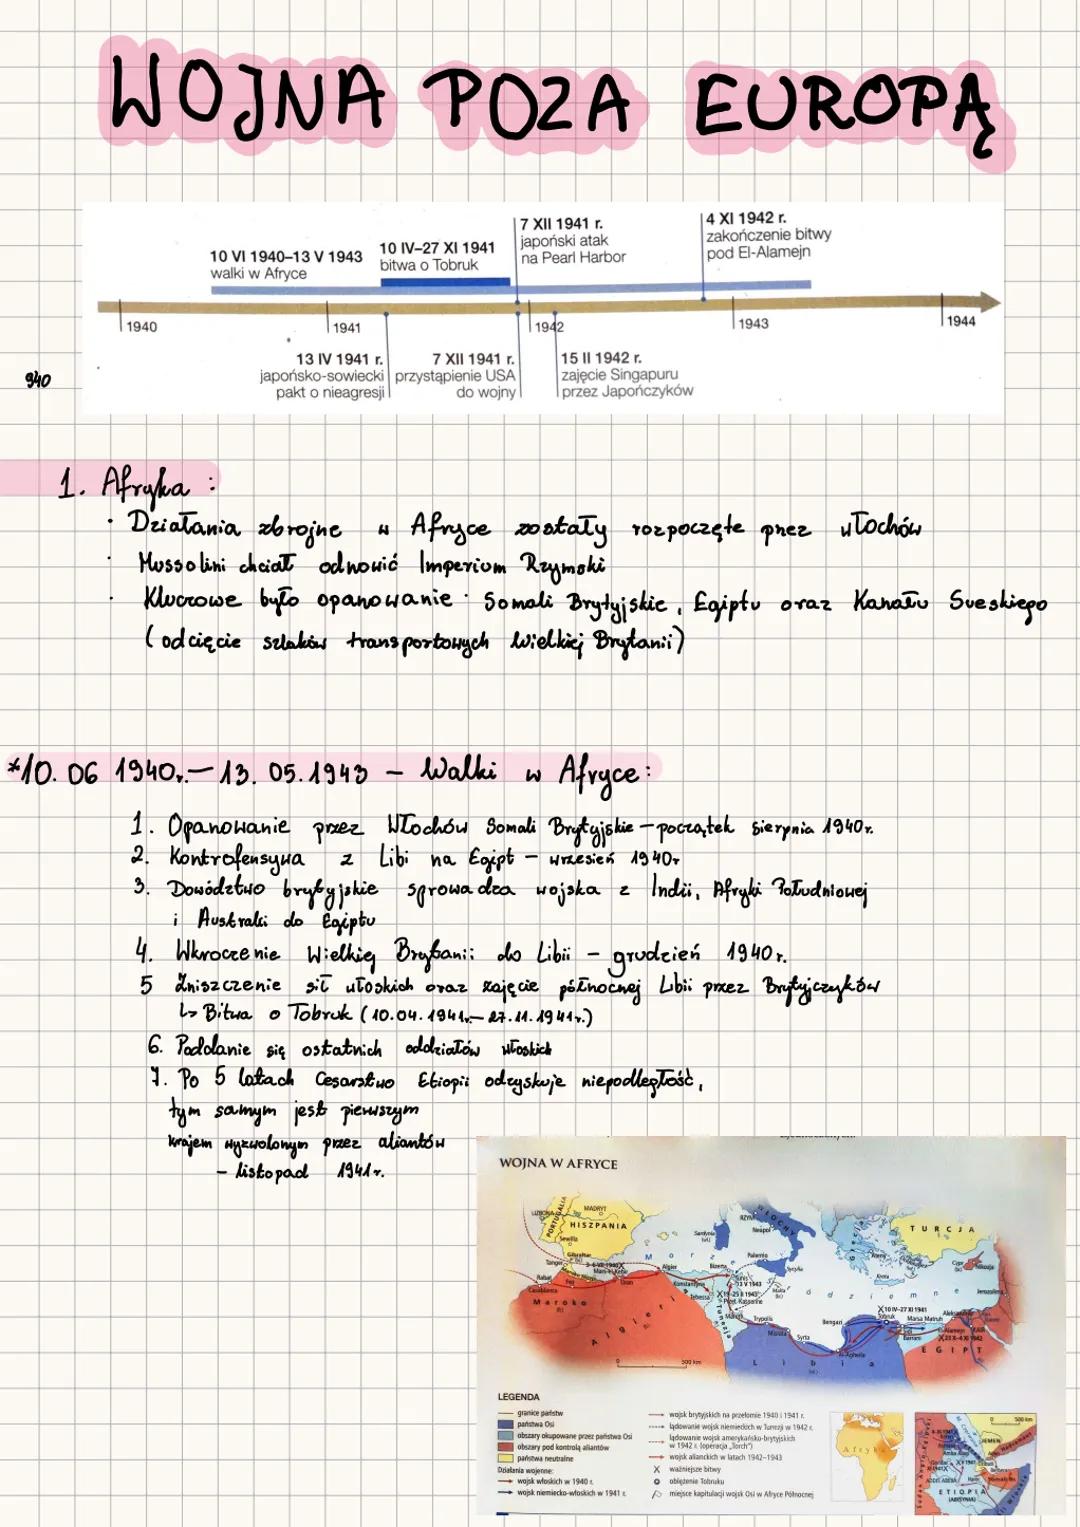 WOJNA POZA EUROPĄ
10 VI 1940–13 V 1943
walki w Afryce
10 IV–27 XI 1941
bitwa o Tobruk
7 XII 1941 r.
japoński atak
na Pearl Harbor
4 XI 1942 r.
zakończenie bitwy
pod El-Alamejn
1940
1941
1942
1943
1944
13 IV 1941 r.
japońsko-sowiecki
pakt o nieagresji
7 XII 1941 r.
przystąpienie USA
do wojny
15 II 1942 r.
zajęcie Singapuru
przez Japończyków
940
1. Afryka :
· Działania zbrojne w Afryce zostały rozpoczęte przez włochów
· Mussolini chciał odnowić Imperium Rzymski
· Kluczowe było opanowanie · Somali Brytyjskie, Egiptu oraz Kanału Sueskiego
(odcięcie szlaków transportowych Wielkiej Brytanii)
*10. 06 1940r.— 13. 05. 1943 – Walki w Afryce:
1. Opanowanie przez Włochów Somali Brytyjskie – początek sierpnia 1940r.
2. Kontrofensywa z Libi na Egipt – wrzesień 1940r
3. Dowództwo brytyjskie sprowadza wojska z Indii, Afryki Południowej
i Australi do Egiptu
4. Wkroczenie Wielkiej Brytanii do Libii – grudzień 1940r.
5 Zniszczenie sił włoskich oraz zajęcie północnej Libii przez Brytyjczyków
↳ Bitwa o Tobruk (10.04.1941r.— 27.11.1941r.)
6. Poddanie się ostatnich oddziałów włoskich
7. Po 5 latach Cesarstwo Etiopii odzyskuje niepodległość,
tym samym jest pierwszym
krajem wyzwolonym przez aliantów
– listopad 1941r.
WOJNA W AFRYCE
PORTUGALIA
MADRYT
HISZPANIA
Sewilla
Gibraltar
Tanger
Rabat
Casablanca
Fez
Oran
Maroko
Algier
Algieria
Konstantyna
Tebessa
Bizerta
Tunis
13 V 1943
Tunezja
RZYM
WŁOCHY
Neapol
Sardynia
Palermo
Sycylia
Malta
Morze Śródziemne
Trypolis
Misrata
Syrta
Bengazi
El-Agheila
Libia
Grecja
Ateny
Kreta
TURCJA
Cypr
Nikozja
Jerozolima
10 IV–27 XI 1941
Tobruk
Marsa Matruh
Barrani
El-Alamejn
KAIR
EGIPT
0 500 km
LEGENDA
granice państw
państwa Osi
obszary okupowane przez państwa Osi
obszary pod kontrolą aliantów
państwa neutralne
Działania wojenne:
wojsk włoskich w 1940 r.
wojsk niemiecko-włoskich w 1941 r.
wojsk brytyjskich na przełomie 1940 i 1941 r.
lądowanie wojsk niemieckich w Tunezji w 1942 r.
lądowanie wojsk amerykańsko-brytyjskich
w 1942 r. (operacja „Torch")
wojsk alianckich w latach 1942–1943
ważniejsze bitwy
oblężenie Tobruku
miejsce kapitulacji wojsk Osi w Afryce Północnej
Afryka
0 500 km
JEMEN
ADDIS ABEBA
ETIOPIA
(ABISYNIA)